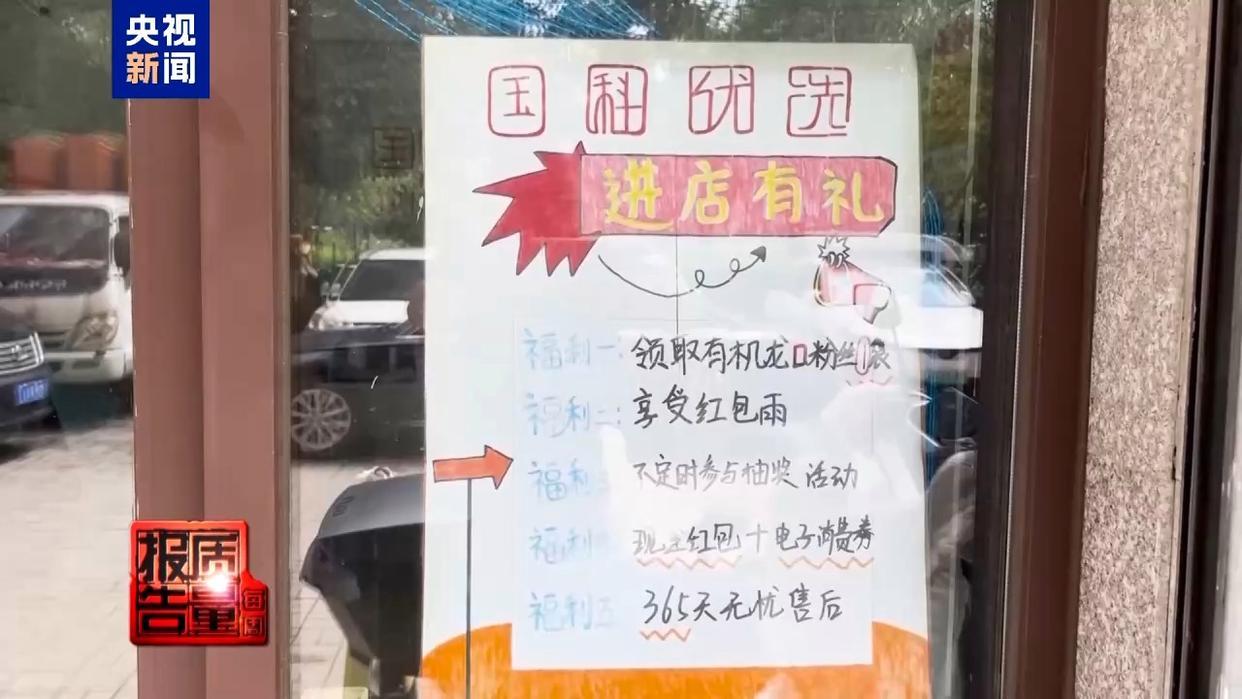 央视
新闻
国科优选
进店有礼
福利一:领取有机龙口粉丝1袋
福利二:享受红包雨
福利三 不定时参与抽奖活动
福利四 现送红包+电子消费券
福利五 365天无忧售后
每周
质量
报告